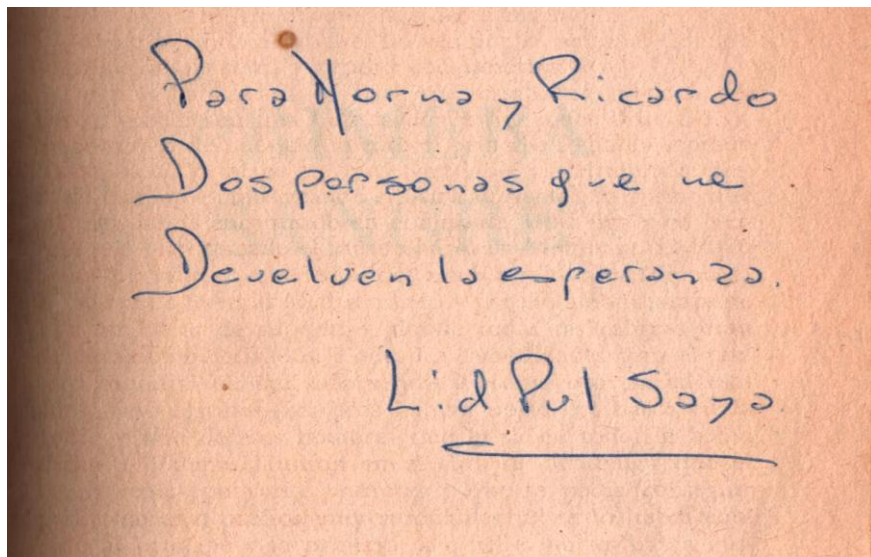 Para Norma y Ricardo
Dos personas que me
Devuelven la esperanza.
Lid Pul Saya